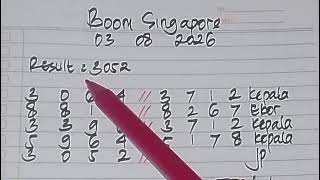 Boom Singapore
03 08 2026
Result : 3052
3 0 6 4 // 3 7 1 2 kepala
8 8 1 8 2 6 7 Ekor
3 3 9 3 7 1 2 kepala
5 9 6 4 // 5 1 7 8 kepala
3 0 5 2 // JP